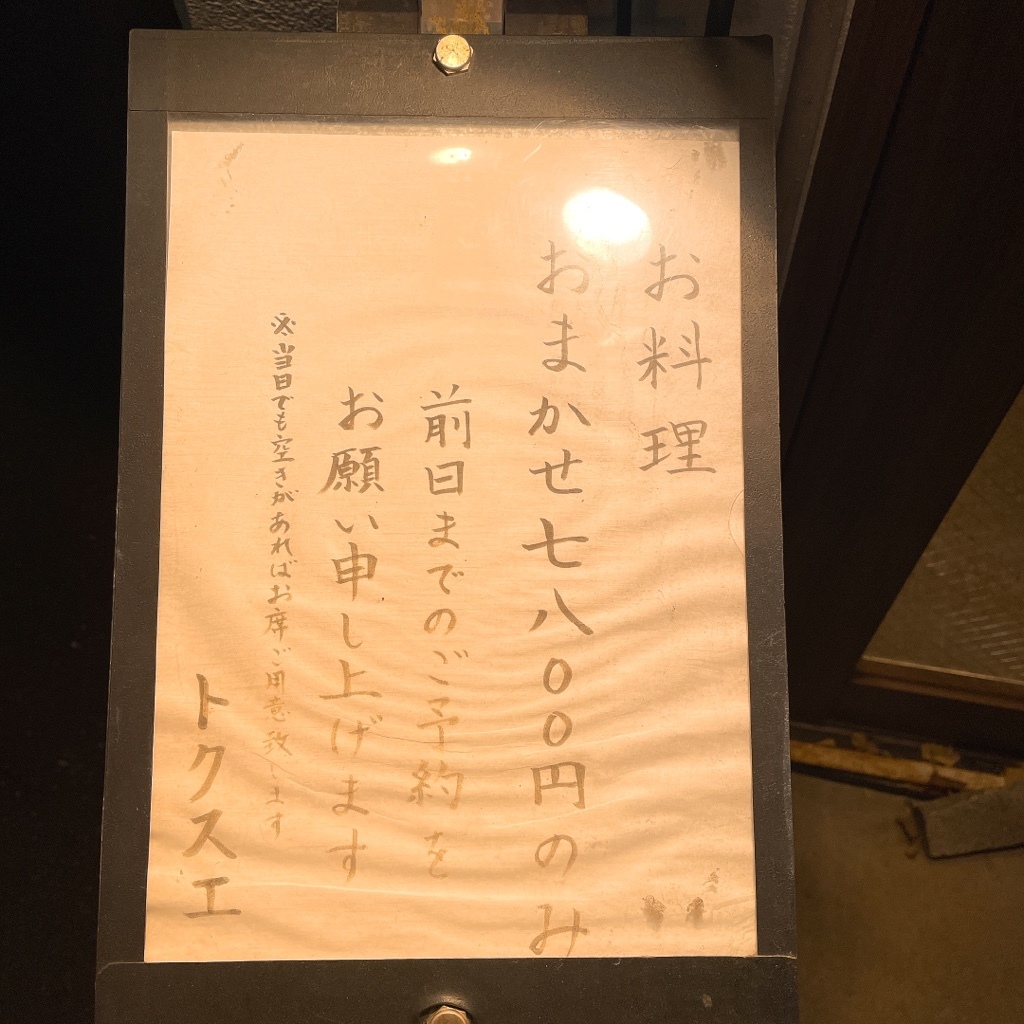 お料理
おまかせ七八〇〇円のみ
前日までのご予約を
お願い申し上げます
※当日でも空きがあればお席ご用意致します
トクスエ